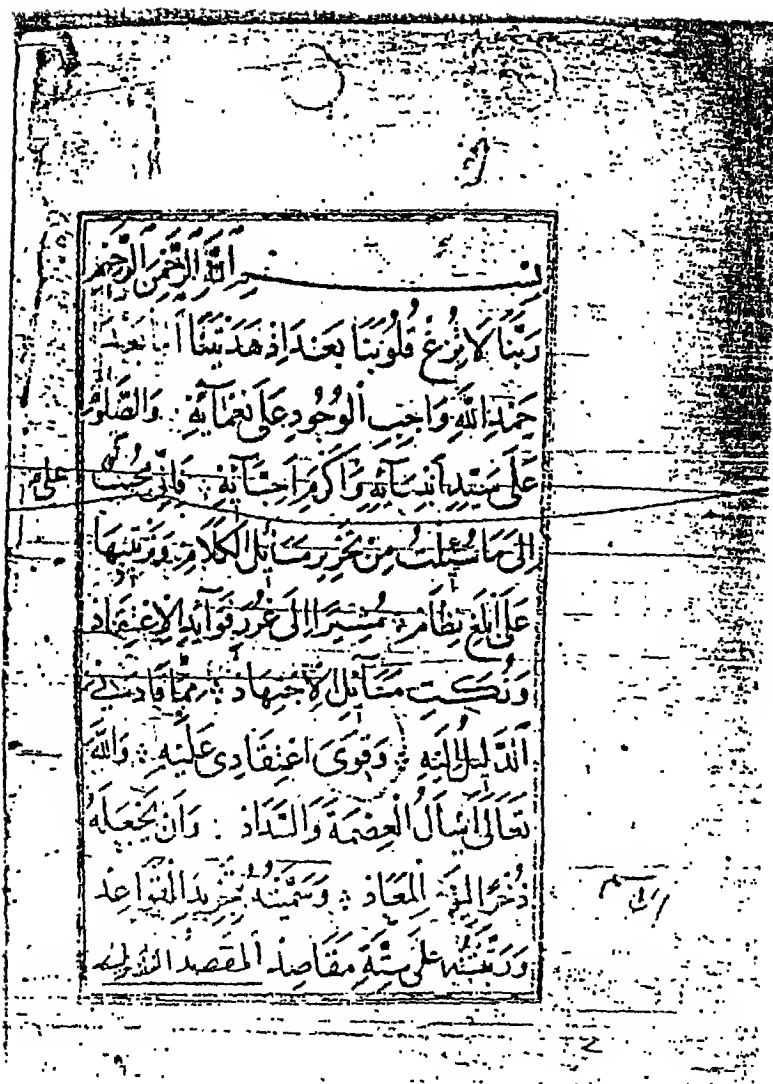 بسم الله الرحمن الرحيم
ربنا لا تزغ قلوبنا بعد اذ هديتنا اما بعد
حمد الله واجب الوجود على نعمآئه والصلوة
على سيد انبيآئه واكرم احبآئه فانى مجيب
الى ما سئلت من تحرير مسائل الكلام وترتيبها
على ابلغ نظام مشيرا الى غرر فوآئد الاعتقاد
ونكت مسآئل الاجتهاد مما قادنى
الدليل اليه وقوى اعتقادى عليه والله
تعالى اسأل العصمة والسداد وان يجعله
ذخرا ليوم المعاد وسميته بتجريد العقائد
ورتبته على ستة مقاصد المقصد الاول